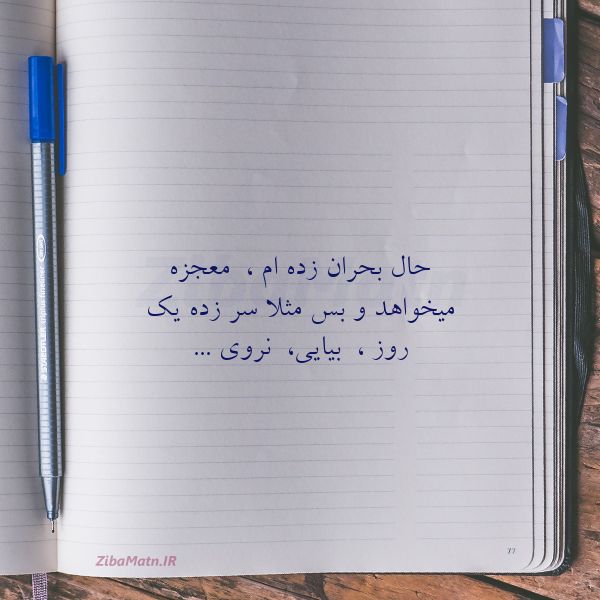 حال بحران زده ام ، معجزه
میخواهد و بس مثلا سر زده یک
روز ، بیایی، نروی ...
77
ZibaMatn.IR